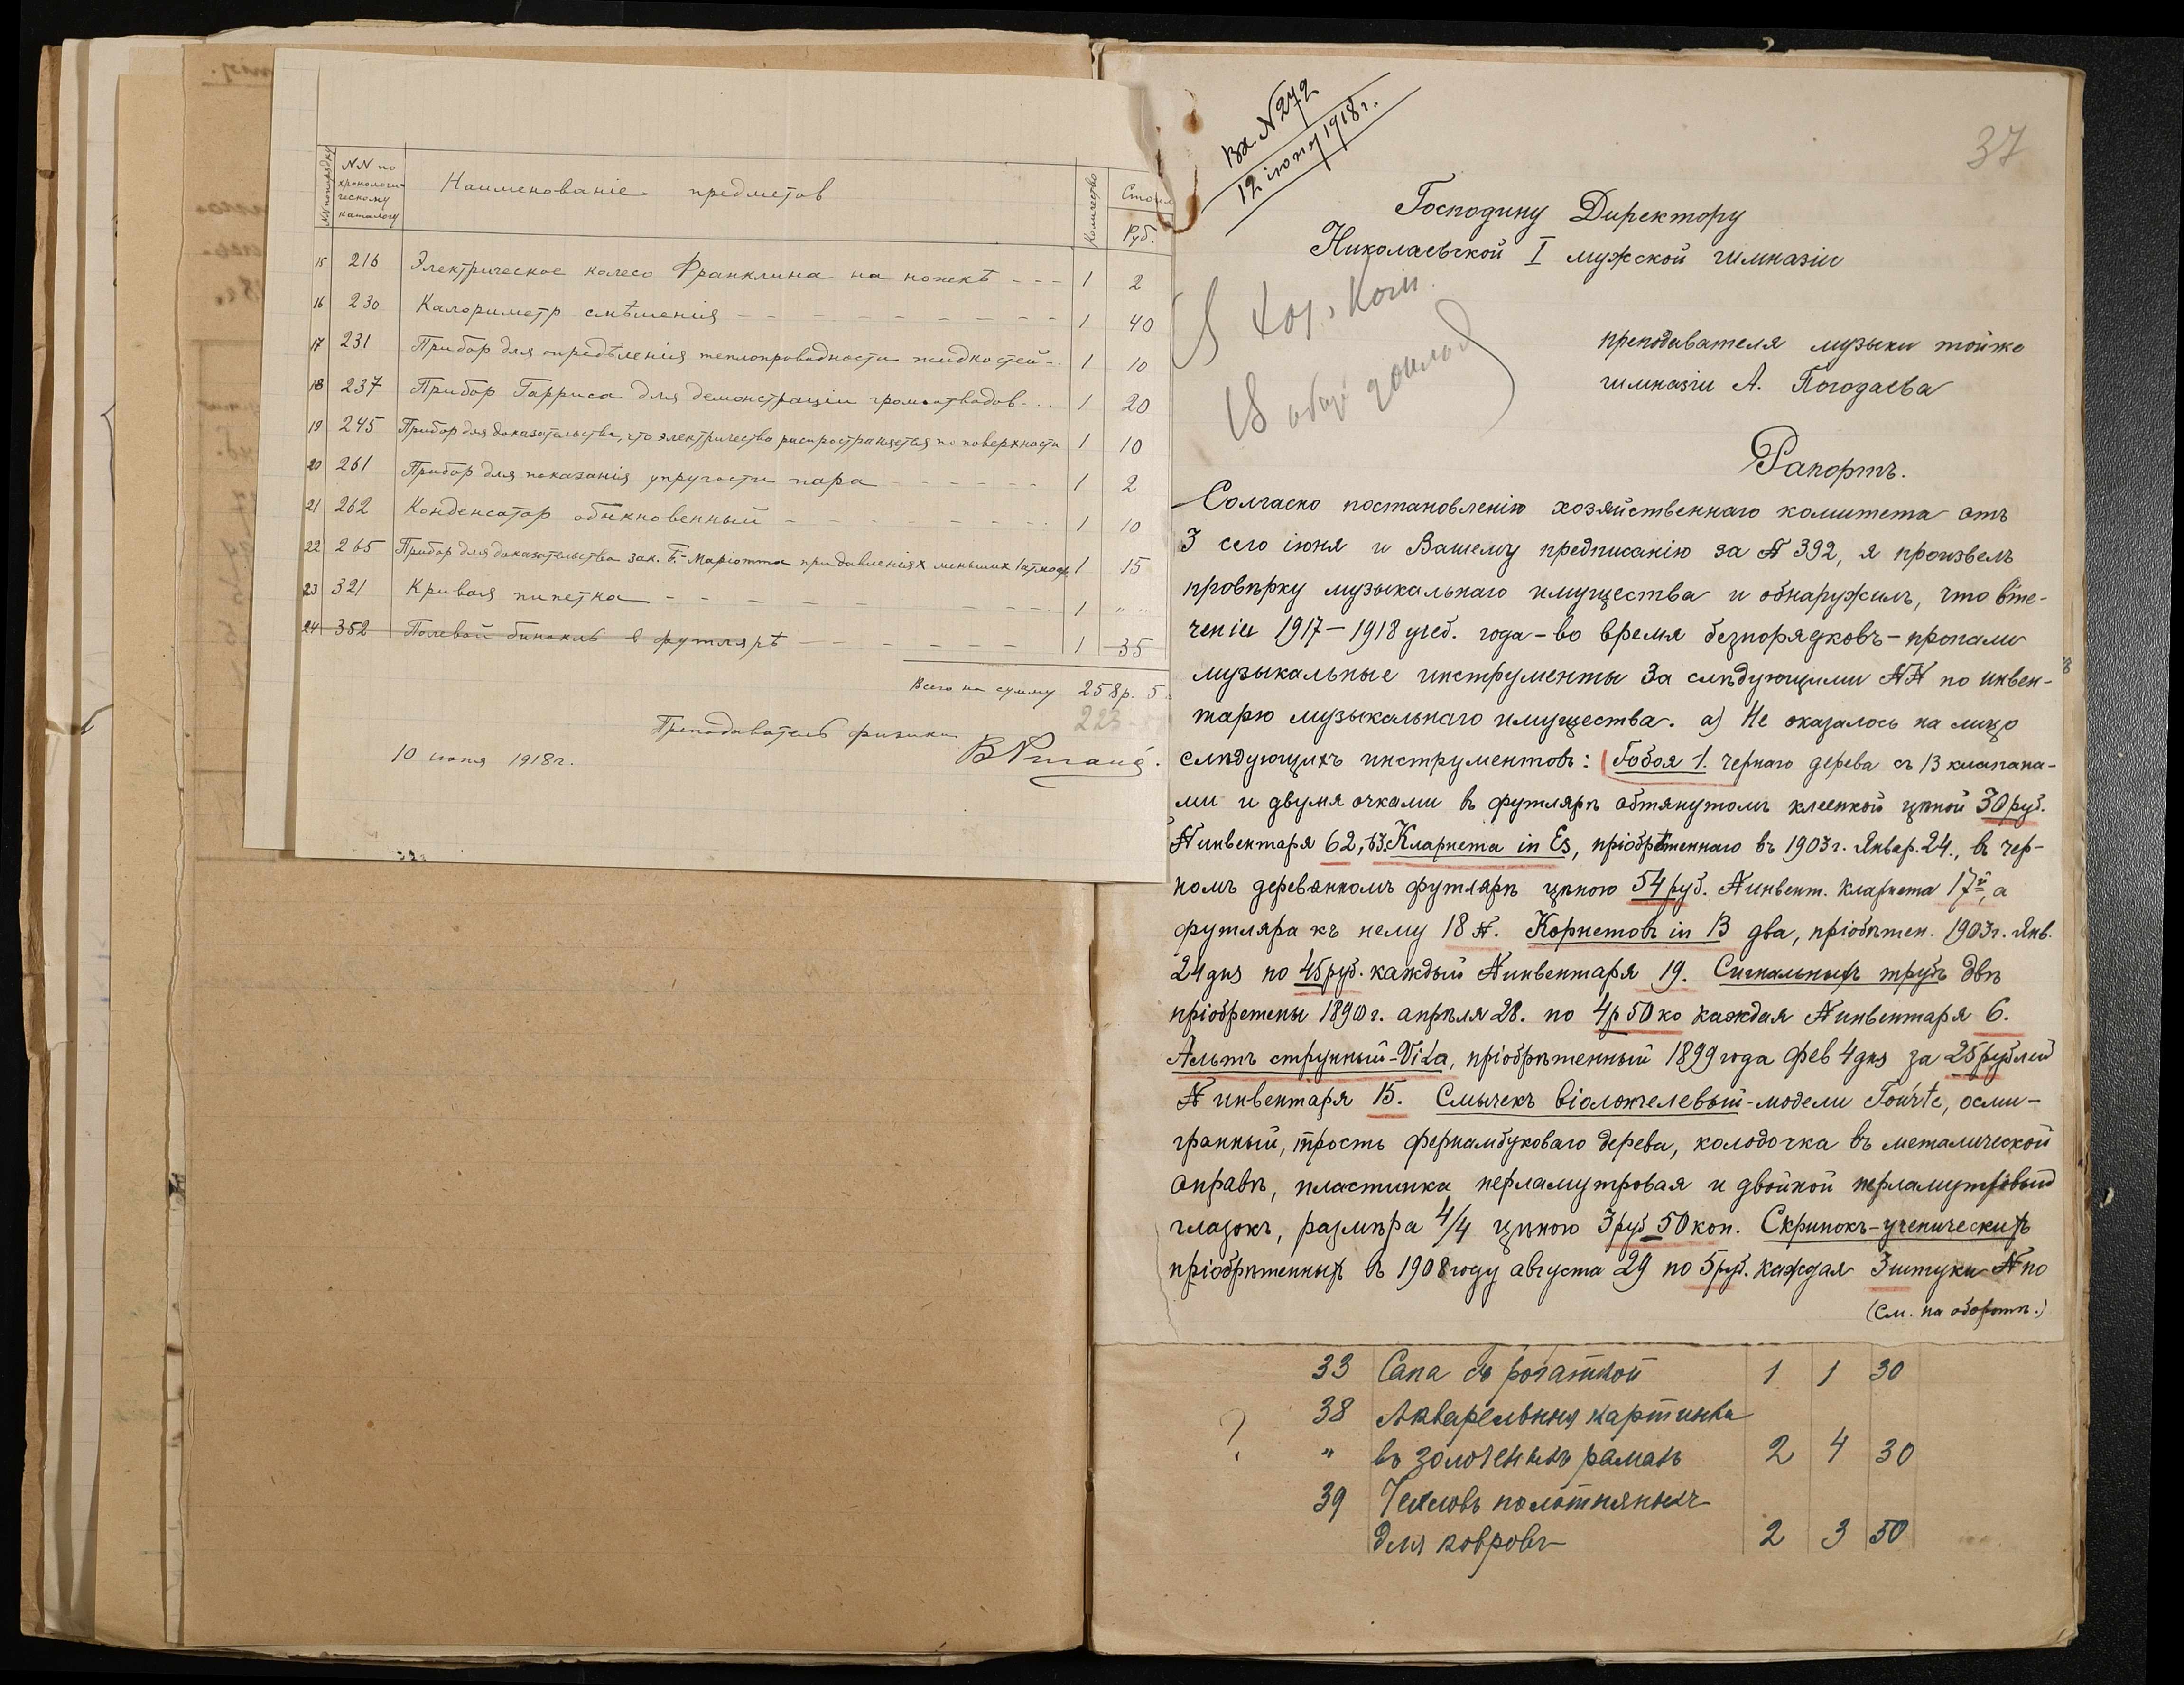 NN по порядку
NN по хронологи-
ческому
каталогу
Наименованіе предметов
Количество
Стоим
Руб.
15 216 Электрическое колесо Франклина на ножкѣ - - - 1 2
16 230 Калориметр смѣшенія - - - - - - - - - 1 40
17 231 Прибор для опредѣленія теплопроводности жидкостей - . 1 10
18 237 Прибор Гарриса для демонстраціи громоотводов . . . 1 20
19 245 Прибор для доказательства, что электричество распространяется по поверхности 1 10
20 261 Прибор для показанія упругости пара - - - - - - 1 2
21 262 Конденсатор обыкновенный - - - - - - - - 1 10
22 265 Прибор для доказательства зак. Б.-Маріотта при давленіях меньших 1 атмосф. 1 15
23 321 Кривая пипетка - - - - - - - - - - 1 " "
24 352 Полевой бинокль в футлярѣ - - - - - - 1 35
Всего на сумму 258 р. 5
223
Преподаватель физики
10 июня 1918 г.
Вх N 272
12 іюня 1918 г.
37
Господину Директору
Николаевской I мужской гимназіи
преподавателя музыки тойже
гимназіи А. Погодаева
Рапортъ.
Солгасно постановленію хозяйственнаго комитета отъ
3 сего іюня и Вашему предписанію за N 392, я произвелъ
провѣрку музыкальнаго имущества и обнаружилъ, что втe-
ченіи 1917 – 1918 учеб. года – во время безпорядковъ – пропали
музыкальные инструменты за слѣдующими NN по инвен-
тарю музыкальнаго имущества. а) Не оказалось на лицо
слѣдующихъ инструментовъ: Гобоя 1. чернаго дерева съ 13 клапана-
ми и двумя очками въ футлярѣ обтянутомъ клеенкой цѣной 30 руб.
N инвентаря 62, 63. Кларнета in Es, пріобрѣтеннаго въ 1903 г. Январ. 24., въ чер-
номъ деревянномъ футлярѣ цѣною 54 руб. N инвент. кларнета 17й, а
футляра къ нему 18 N. Корнетовъ in B два, пріобрѣтен. 1903 г. Янв.
24 дня по 45 руб. каждый N инвентаря 19. Сигнальныхъ трубъ двѣ
пріобретены 1890 г. апрѣля 28. по 4 р 50 ко каждая N инвентаря 6.
Альтъ струнный - Viola, пріобрѣтенный 1899 года фев 4 дня за 25 рублей
N инвентаря 15. Смычекъ віолончелевый - модели Tourte, осми-
гранный, трость фернамбуковаго дерева, колодочка въ металической
оправѣ, пластинка перламутровая и двойной перламутровый
глазокъ, размѣра 4/4 цѣною 3 руб 50 коп. Скрипокъ - ученическихъ
пріобрѣтенныхъ въ 1908 году августа 29 по 5 руб. каждая 3 штуки N по
(См. на оборотѣ.)
33 Сапа съ рогаткой 1 1 30
38 Акварельныя картинки
? " въ золоченыхъ рамахъ 2 4 30
39 Чехловъ полотняныхъ
для ковровъ 2 3 50